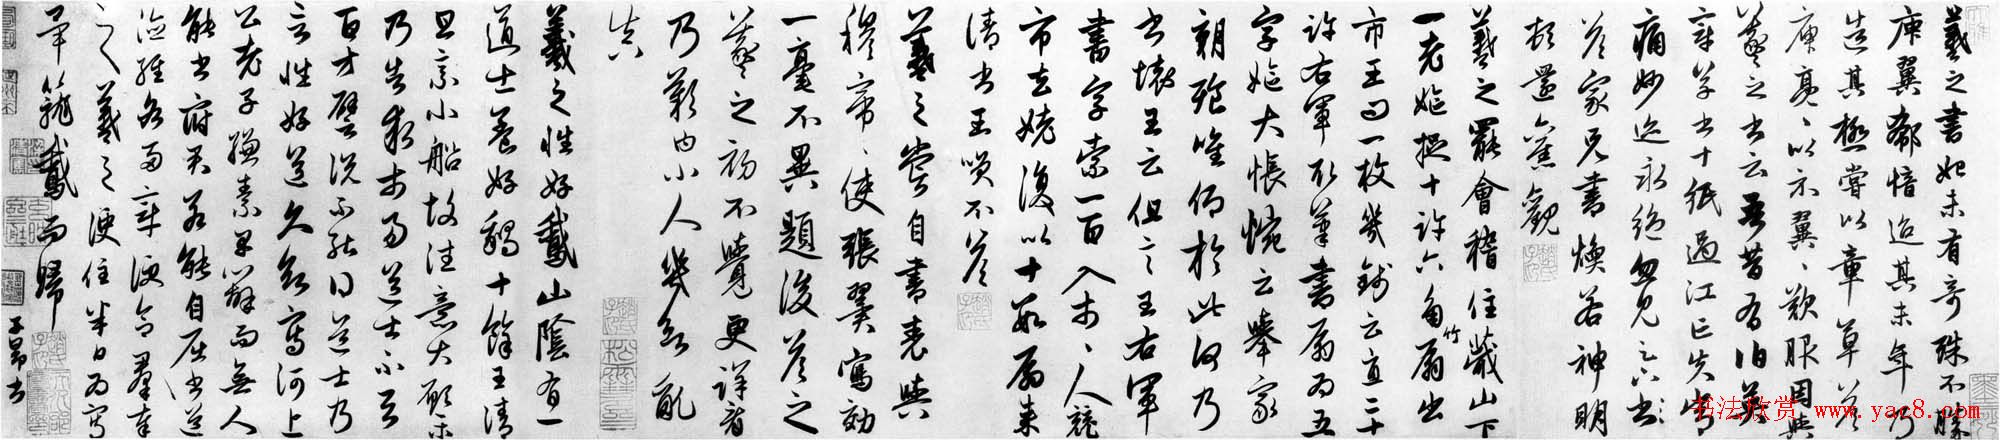 羲之書始未有奇殊不勝
庾翼郗愔迨其末年乃
造其極嘗以章草答
庾亮、以示翼、歎服因與
羲之書云吾昔有伯英
章草書十紙過江亡失常
痛妙迹永絕忽見足下書
答家兄書煥若神明
頓還舊觀
羲之罷會稽住蕺山下
一老嫗捉十許六角竹扇出
市王問一枚幾錢云直二十
許右軍取筆書扇為五
字嫗大悵惋云舉家
朝飡唯仰於此何乃
書壞王云但言王右軍
書字索一百入市、人競
市去姥復以十數扇來
請書王笑不答
羲之嘗自書表與
穆帝、使張翼寫効
一毫不異題後答之
羲之初不覺更詳看
乃歎曰小人幾欲亂
真
羲之性好鵞山陰有一
道士養好鵝十餘王清
旦乘小船故往意大願樂
乃告求市易道士不與
百方譬說不能得道士乃
言性好道久欲寫河上
公老子縑素早辦而無人
能書府君若能自屈書道
德經各兩章便合羣奉
之羲之便住半日為寫
畢籠鵞而歸
子昂書
书法欣赏 www.yac8.com